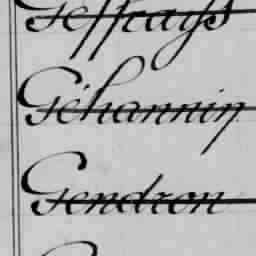 Geffrays
Géhannin
Gendron